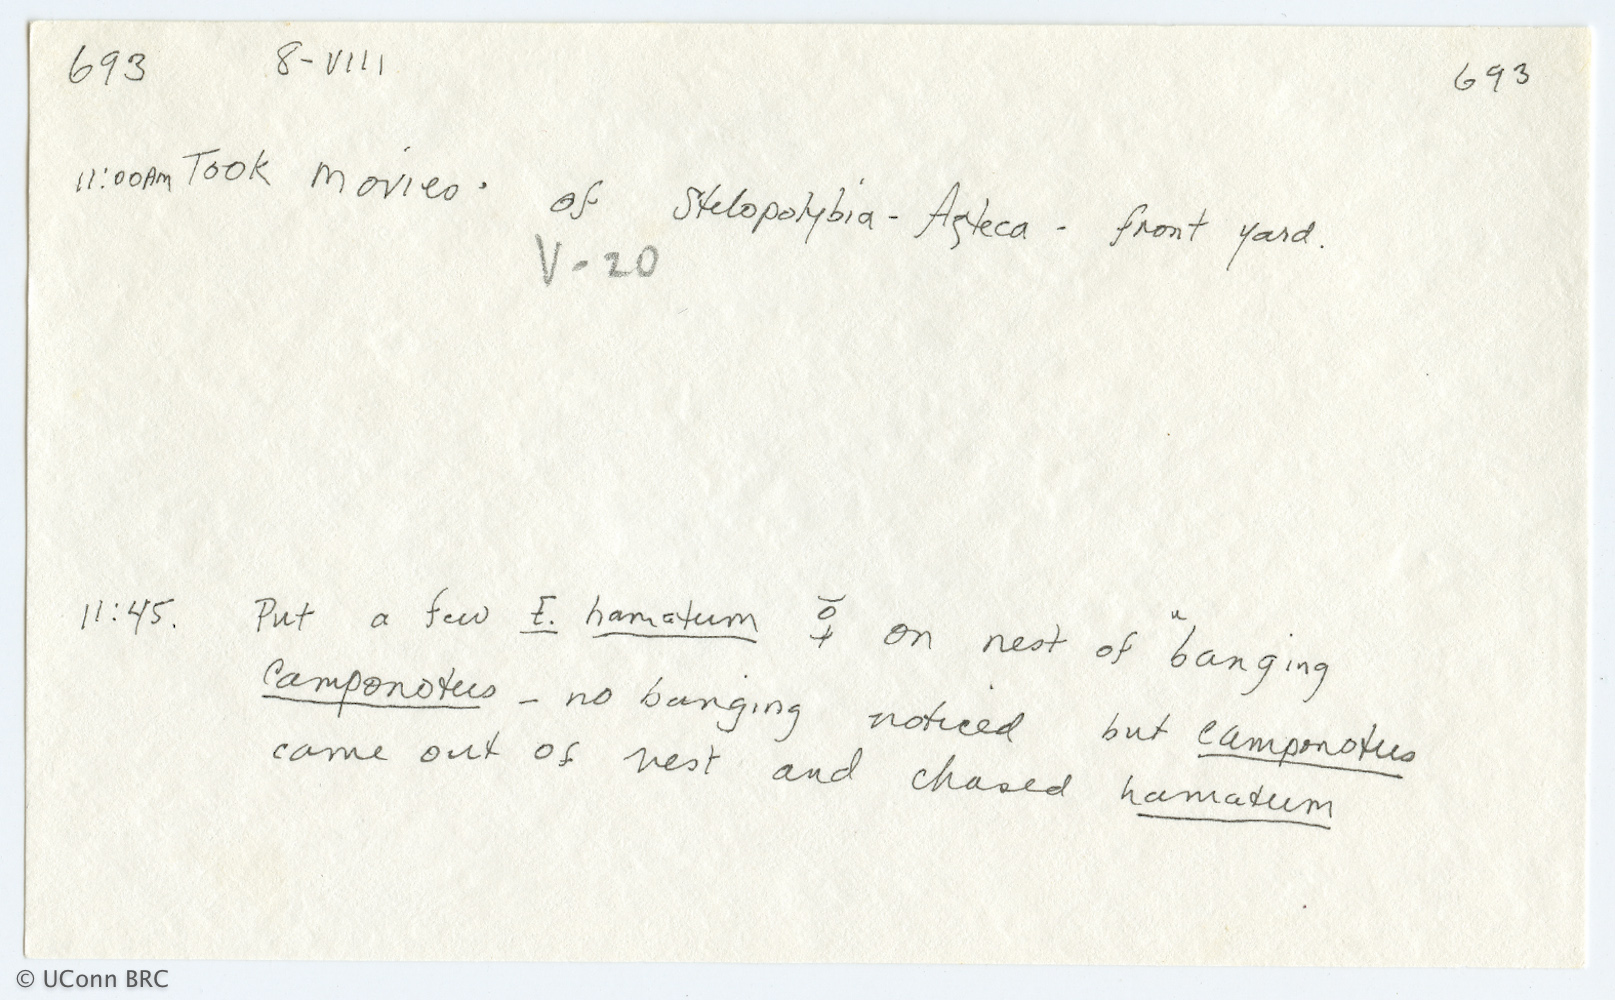 693 8-VIII 693
11:00AM Took movies. of Stelopolybia - Azteca - front yard.
V-20
11:45. Put a few E. hamatum ☿ on nest of "banging
Camponotus - no banging noticed but Camponotus
came out of nest and chased hamatum
© UConn BRC